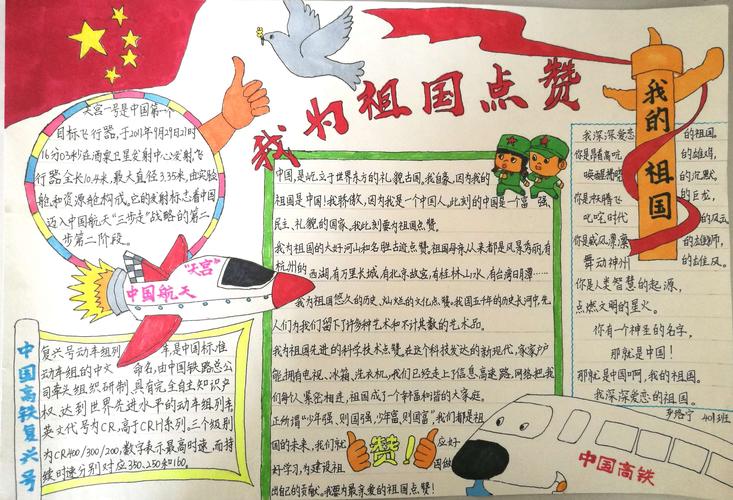 我为祖国点赞
天宫一号是中国第一个
目标飞行器,于2011年9月29日21时
16分03秒在酒泉卫星发射中心发射,飞
行器全长10.4米,最大直径3.35米,由实验
舱和资源舱构成,它的发射标志着中国
迈入中国航天“三步走”战略的第二
步第二阶段。
“天宫”
中国航天
中国高铁复兴号
复兴号动车组列车,是中国标准
动车组的中文命名,由中国铁路总公
司牵头组织研制,具有完全自主知识产
权、达到世界先进水平的动车组列车,
英文代号为CR,高于CRH系列,三个级别
为CR400/300/200,数字表示最高时速,而持
续时速分别对应350、250和160。
中国,是屹立于世界东方的礼貌古国。我自豪,因为我的
祖国是中国!我骄傲,因为我是一个中国人。此刻的中国是一个富强
民主、礼貌的国家,我此刻要为祖国点赞。
我为祖国的大好河山和名胜古迹点赞。祖国母亲从来都是风景秀丽,有
杭州的西湖,有万里长城,有北京故宫,有桂林山水,有台湾日月潭……
我为祖国悠久的历史、灿烂的文化点赞。我国五千年的历史长河中,先
人们为我们留下了许多种艺术和不计其数的艺术品。
我为祖国先进的科学技术点赞。在这个科技发达的新现代,家家户户
能拥有电视、冰箱、洗衣机,我们已经走上了信息高速路,网络把我
们每个人紧密相连,祖国成了一个种富和谐的大家庭。
正所谓“少年强、则国强,少年富、则国富”,我们都是祖
国的未来,我们就应好好
赞!
好学习,为建设祖国做
出自己的贡献。我要为最亲爱的祖国点赞!
我的祖国
我深深爱恋的祖国。
你是昂首高吭的雄鸡,
唤醒拂晓的沉默
你是冲天腾飞的巨龙,
叱咤时代的风云
你是威风凛凛的雄狮,
舞动神州的雄风。
你是人类智慧的起源,
点燃文明的星火。
你有一个神圣的名字,
那就是中国!
那就是中国啊,我的祖国。
我深深爱恋的祖国。
401班
中国高铁